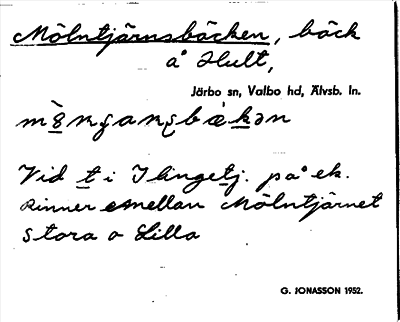 Mölntjärnsbäcken, bäck
å Hult,
Järbo sn, Valbo hd, Älvsb. ln.
Vid t i Ilingetj. på ek.
Rinner emellan Mölntjärnet
Stora o Lilla
G. JONASSON 1952.